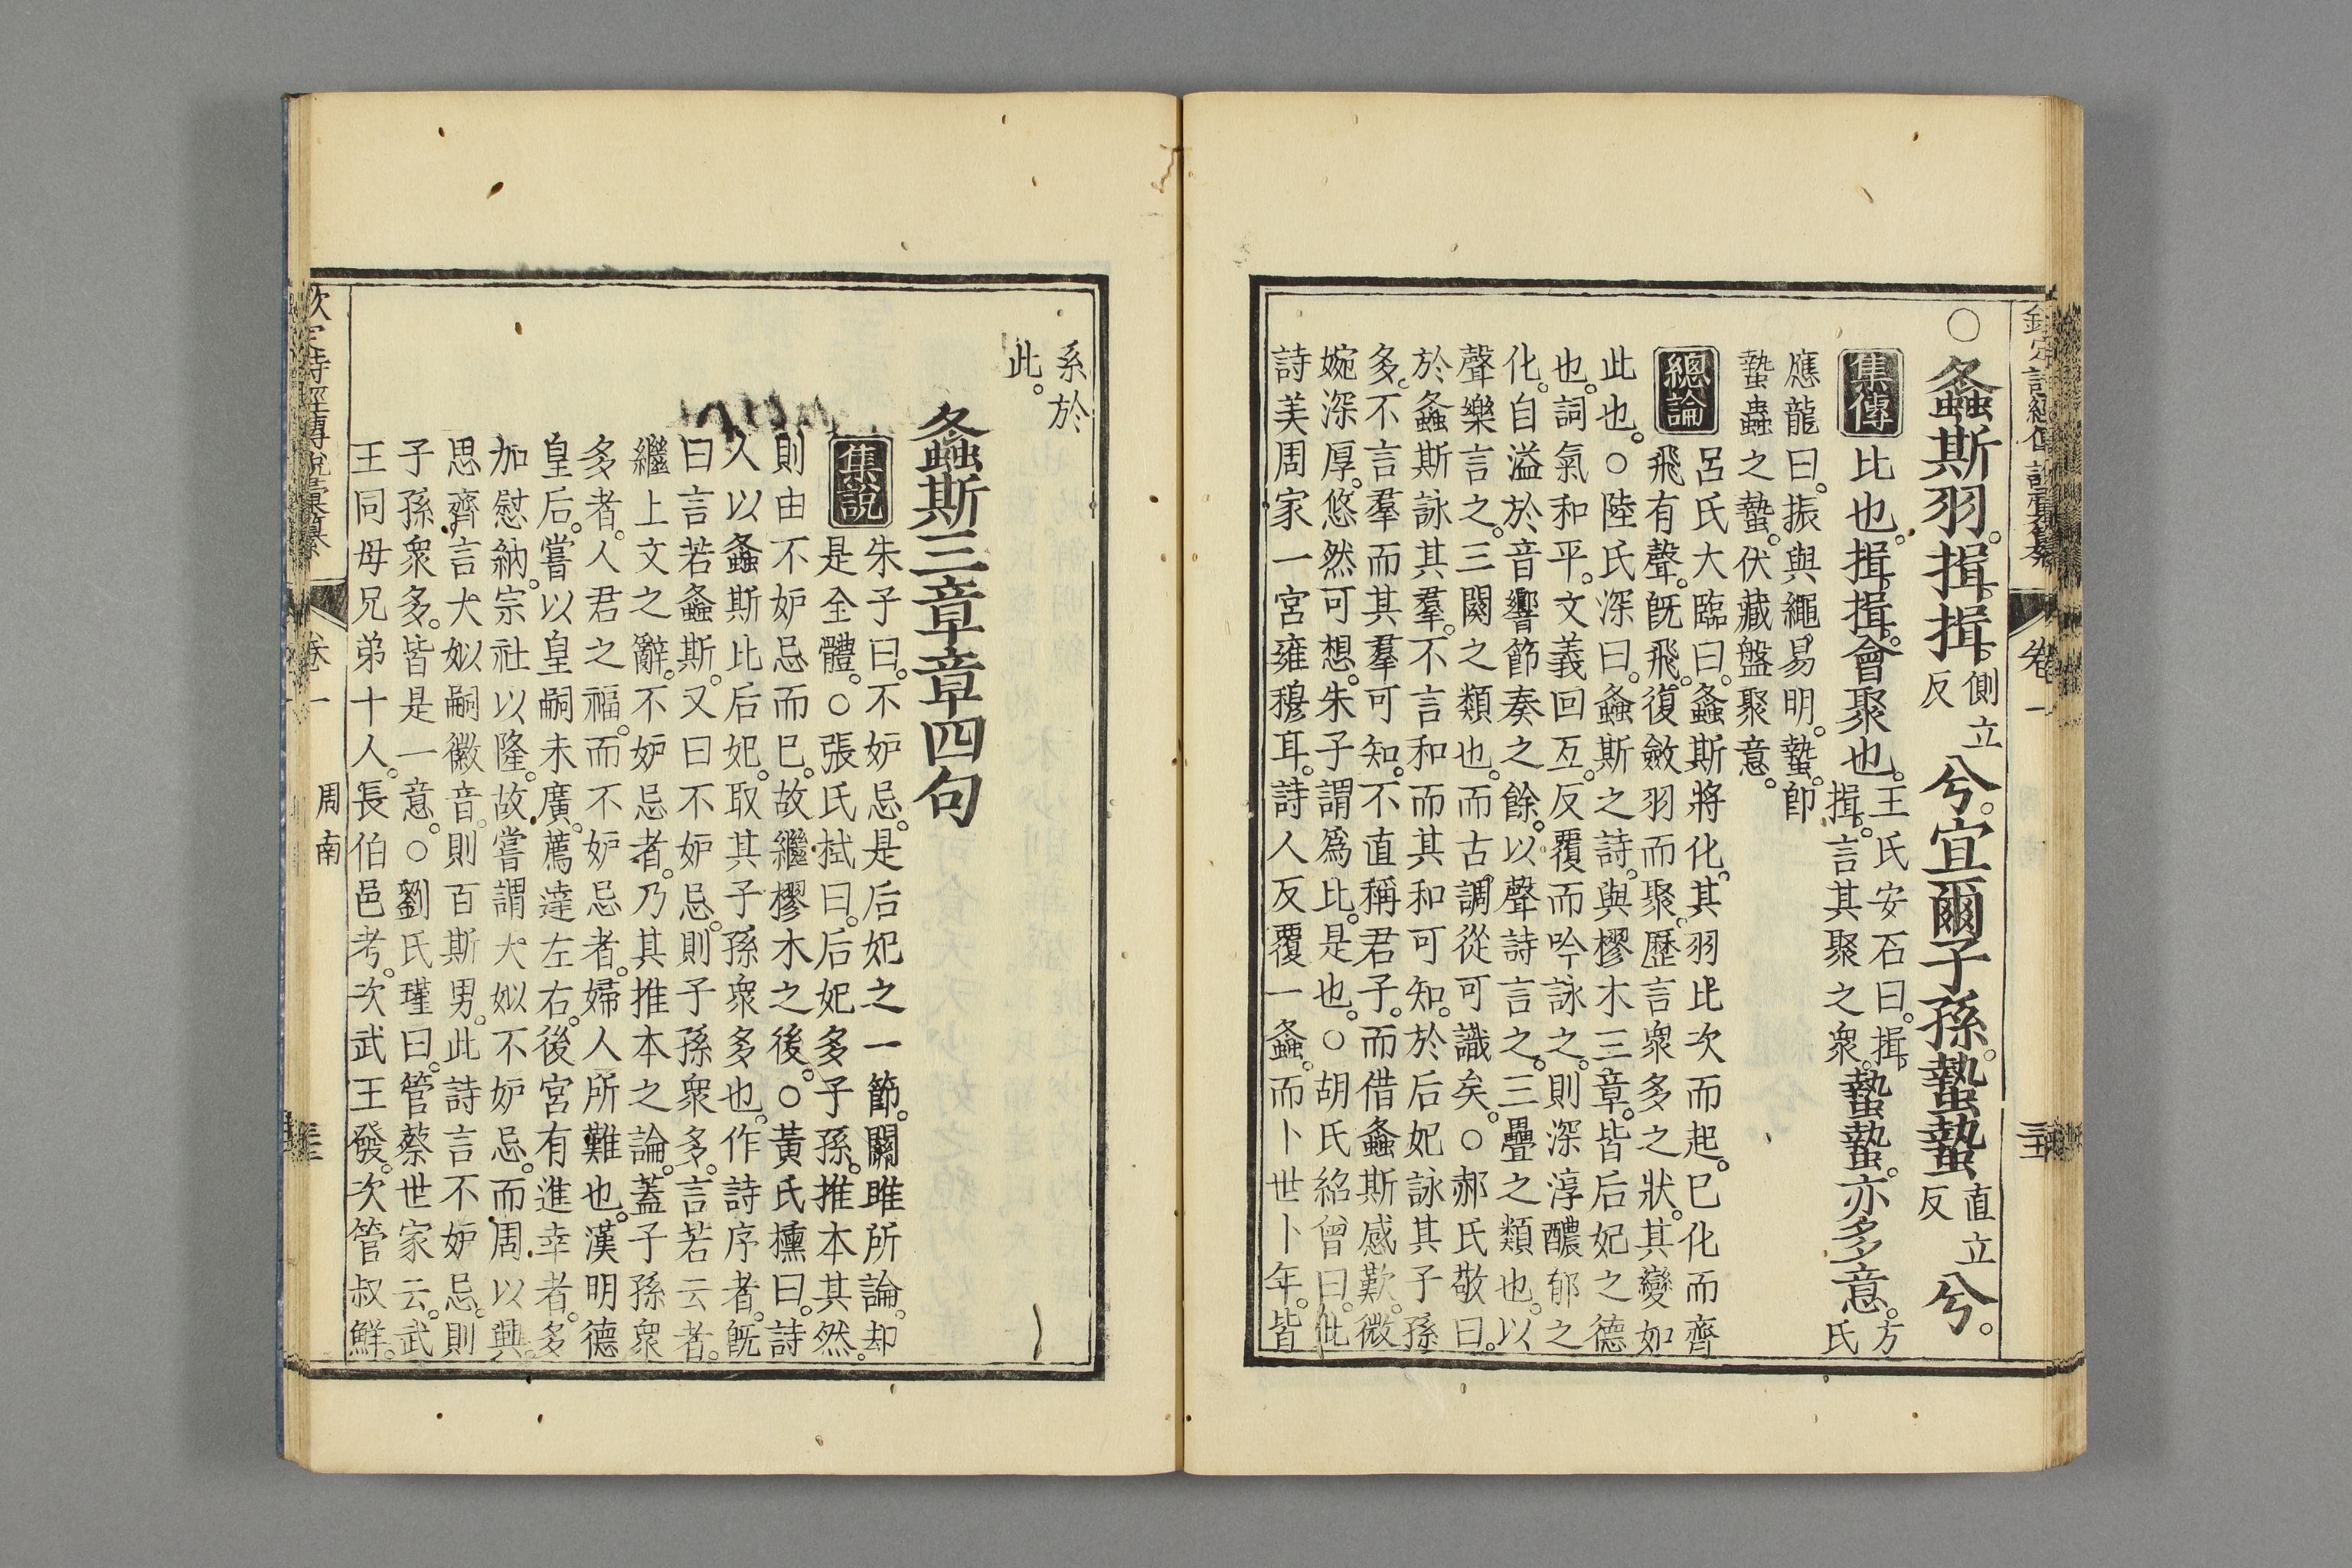 欽定詩經傳說彙纂 卷一
○螽斯羽。揖揖。側立反兮。宜爾子孫。蟄蟄直立反兮。
集傳 比也。揖揖。會聚也。王氏安石曰。揖揖。言其聚之衆。蟄蟄。亦多意。方氏
應龍曰。振與繩易明。蟄。卽
蟄蟲之蟄。伏藏盤聚意。
總論 呂氏大臨曰。螽斯將化。其羽比次而起。已化而齊
飛有聲。旣飛。復斂羽而聚。歷言衆多之狀。其變如
此也。○陸氏深曰。螽斯之詩。與樛木三章。皆后妃之德
也。詞氣和平。文義回互。反覆而吟詠之。則深淳醲郁之
化。自溢於音響節奏之餘。以聲詩言之。三疊之類也。以
聲樂言之。三闋之類也。而古調從可識矣。○郝氏敬曰。
於螽斯詠其羣。不言和而其和可知。於后妃詠其子孫
多。不言羣而其羣可知。不直稱君子。而借螽斯感歎。微
婉深厚。悠然可想。朱子謂爲比。是也。○胡氏紹曾曰。此
詩美周家一宮雍穆耳。詩人反覆一螽。而卜世卜年。皆
系於
此。
螽斯三章章四句
集說 朱子曰。不妒忌。是后妃之一節。關雎所論。却
是全體。○張氏栻曰。后妃多子孫。推本其然。
則由不妒忌而已。故繼樛木之後。○黃氏櫄曰。詩
人以螽斯比后妃。取其子孫衆多也。作詩序者。旣
曰言若螽斯。又曰不妒忌。則子孫衆多。言若云者。
繼上文之辭。不妒忌者。乃其推本之論。蓋子孫衆
多者。人君之福。而不妒忌者。婦人所難也。漢明德
皇后。嘗以皇嗣未廣。薦達左右。後宮有進幸者。多
加慰納。宗社以隆。故嘗謂大姒不妒忌。而周以興。
思齊言大姒嗣徽音。則百斯男。此詩言不妒忌。則
子孫衆多。皆是一意。○劉氏瑾曰。管蔡世家云。武
王同母兄弟十人。長伯邑考。次武王發。次管叔鮮。
欽定詩經傳說彙纂 卷一 周南